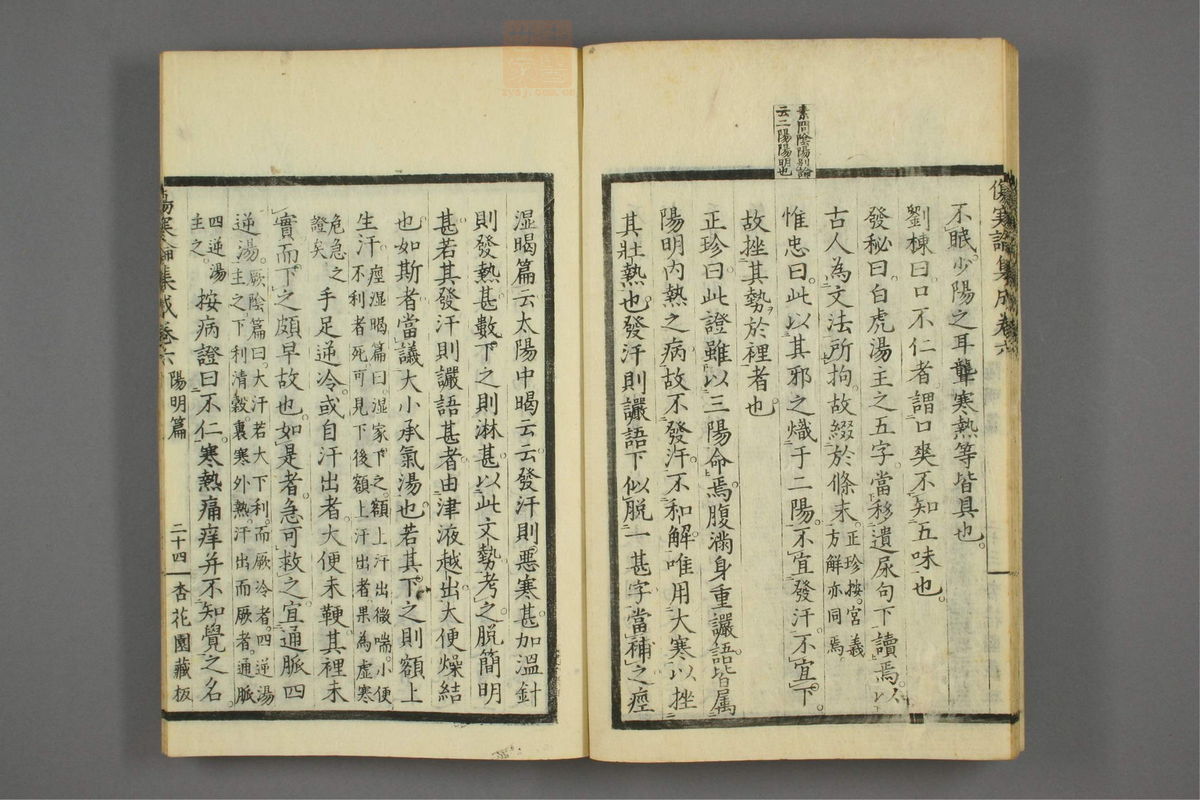 傷寒論集成卷六
素問陰陽別論
云二陽陽明也
不眠少陽之耳聾寒熱等皆具也
劉棟曰口不仁者謂口爽不知五味也
發秘曰白虎湯主之五字當移遺尿句下讀焉以
古人為文法所拘故綴於條末正珍按宮義
方解亦同焉
惟忠曰此以其邪之熾于二陽不宜發汗不宜下
故挫其勢於裡者也
正珍曰此證雖以三陽命焉腹滿身重讝語皆属
陽明内熱之病故不發汗不和解唯用大寒以挫
其壯熱也發汗則讝語下似脱一甚字當補之痙
湿暍篇云太陽中暍云云發汗則悪寒甚加溫針
則發熱甚數下之則淋甚以此文勢考之脱簡明
甚若其發汗則讝語甚者由津液越出大便燥結
也如斯者當議大小承氣湯也若其下之則額上
生汗痙湿暍篇曰湿家下之額上汗出微喘小便
不利者死可見下後額上汗出者果為虚寒
危急之
證矣
手足逆冷或自汗出者大便未鞕其裡未
實而下之頗早故也如是者急可救之宜通脈四
逆湯厥陰篇曰大汗若大下利而厥冷者四逆湯
主之下利清穀裏寒外熱汗出而厥者通脈
四逆湯
主之
按病證曰不仁寒熱痛痒并不知覺之名
傷寒論集成卷六
陽明篇
二十四
杏花園藏板
zysj.com.cn